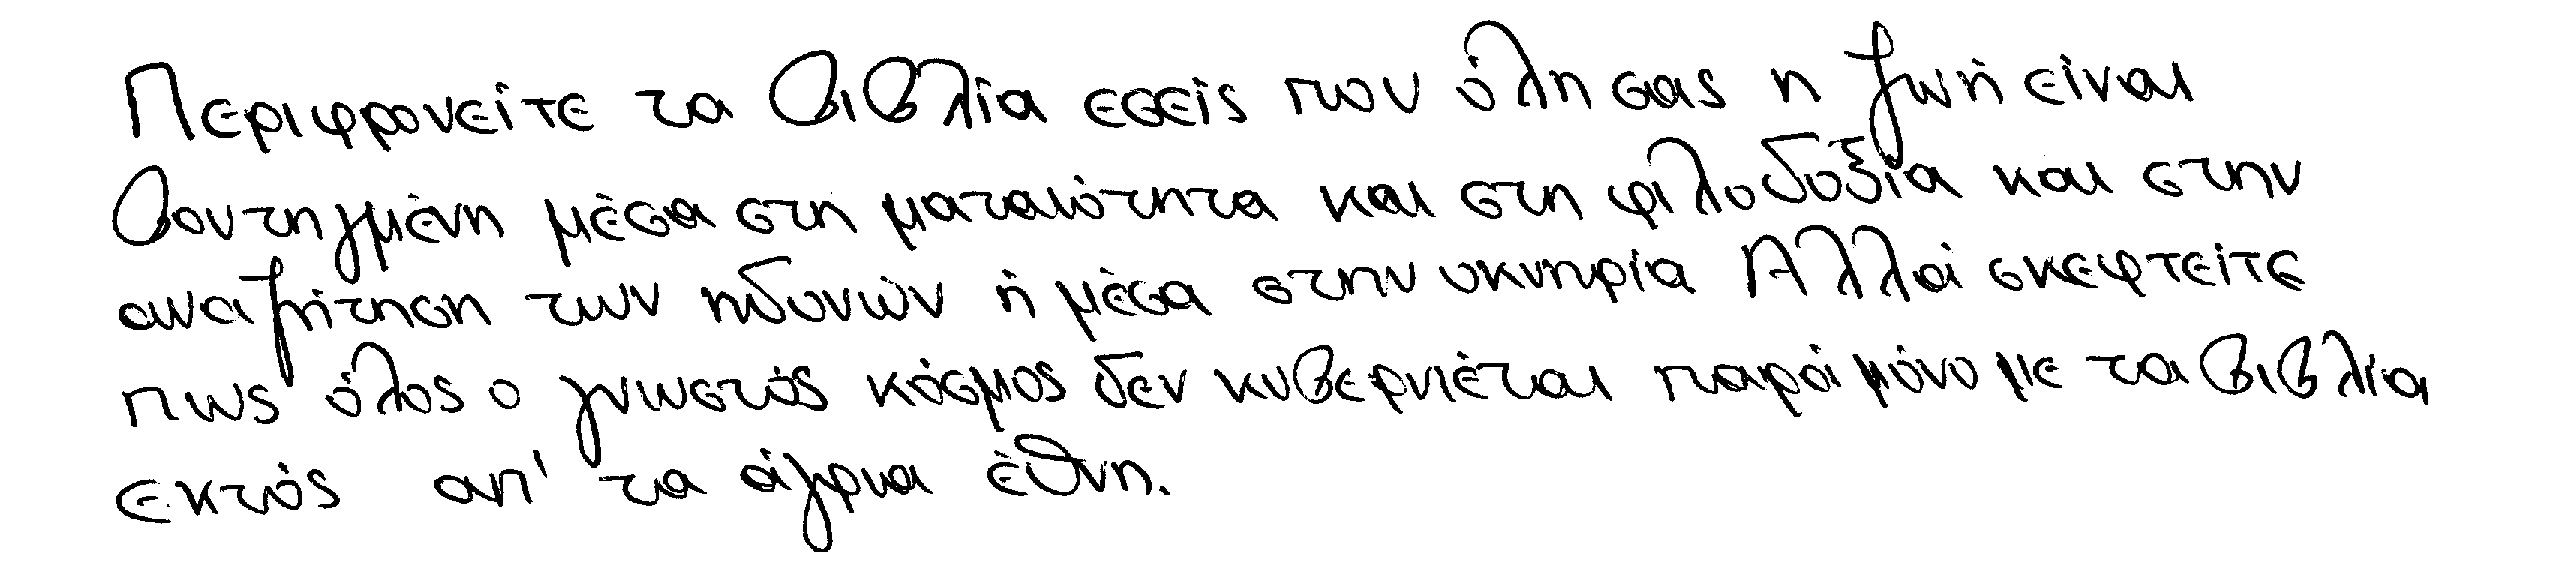 Περιφρονείτε τα βιβλία εσείς που όλη σας η ζωή είναι
βουτηγμένη μέσα στη ματαιότητα και στη φιλοδοξία και στην
αναζήτηση των ηδονών ή μέσα στην οκνηρία Αλλά σκεφτείτε
πως όλος ο γνωστός κόσμος δεν κυβερνιέται παρά μόνο με τα βιβλία
εκτός απ' τα άγρια έθνη.